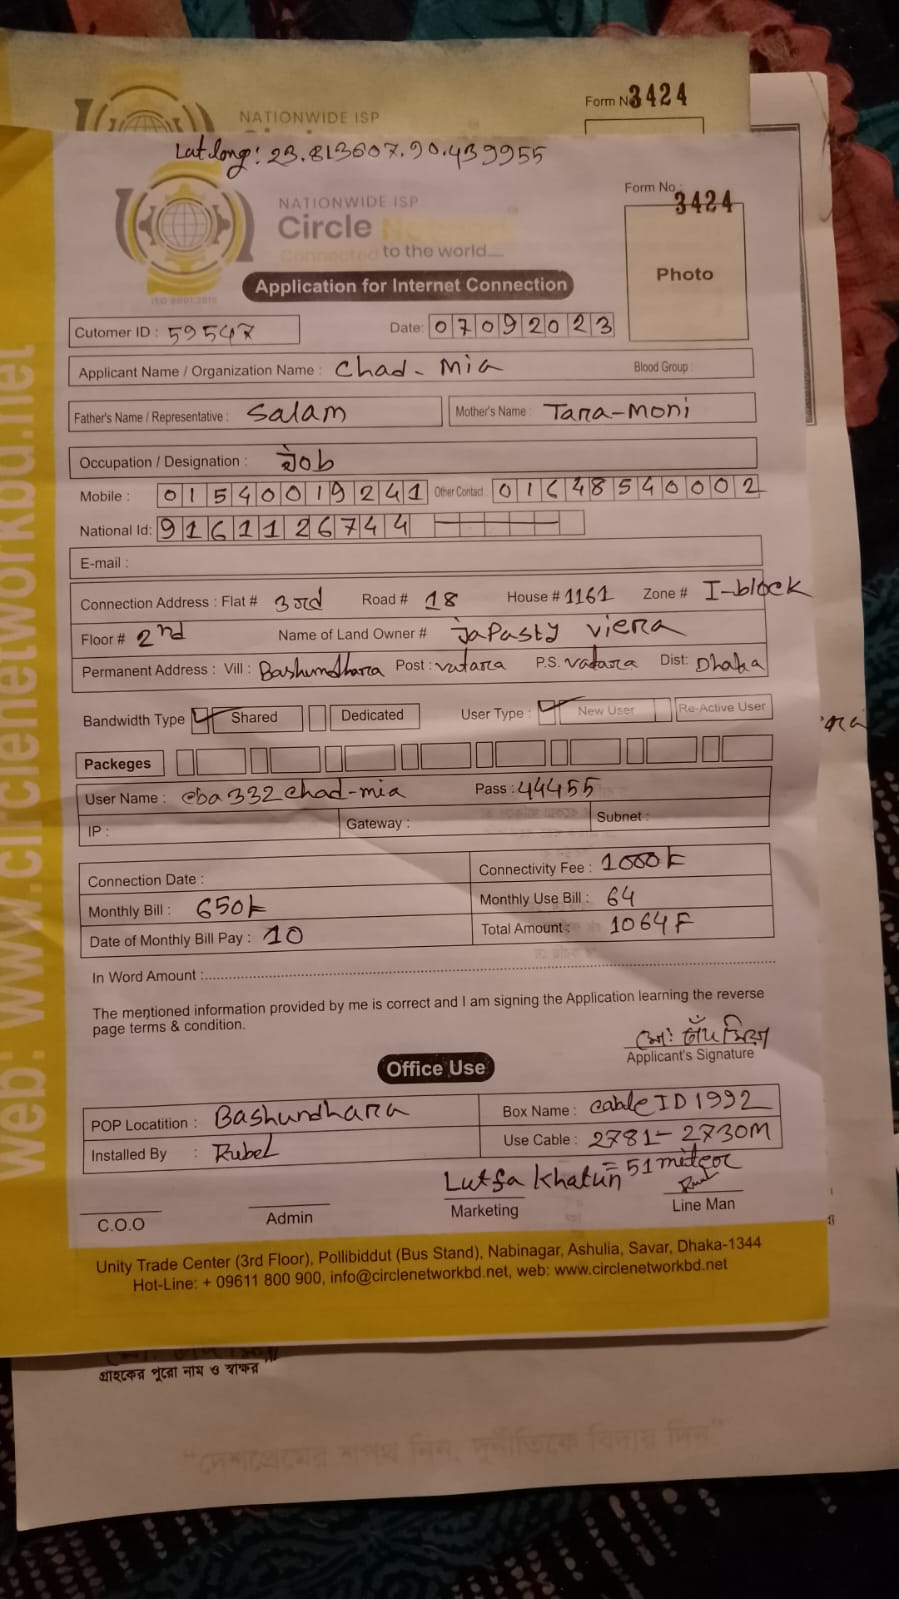 NATIONWIDE ISP
Form No 3424
Lat Long: 23.813607.90.439955
NATIONWIDE ISP
Circle Network
Connected to the world....
ISO 9001:2015
Form No.: 3424
Photo
Application for Internet Connection
Cutomer ID : 59547
Date: 07092023
Applicant Name / Organization Name : Chad - Mia Blood Group :
Father's Name / Representative : Salam Mother's Name : Tara-Moni
Occupation / Designation : Job
Mobile : 01540019241 Other Contact : 01648540002
National Id: 9161126744
E-mail :
Connection Address : Flat # 3rd Road # 18 House # 1161 Zone # I-block
Floor # 2nd Name of Land Owner # Japasty viera
Permanent Address : Vill : Bashundhara Post : vatara P.S. vatara Dist: Dhaka
Bandwidth Type Shared Dedicated User Type : New User Re-Active User
Packeges
User Name : cba332chad-mia Pass : 44455
IP : Gateway : Subnet :
Connection Date : Connectivity Fee : 1000k
Monthly Bill : 650k Monthly Use Bill : 64
Date of Monthly Bill Pay : 10 Total Amount : 1064
In Word Amount :
The mentioned information provided by me is correct and I am signing the Application learning the reverse
page terms & condition.
মোঃ চাঁদ মিয়া
Applicant's Signature
Office Use
POP Locatition : Bashundhara Box Name : cable ID 1992
Installed By : Rubel Use Cable : 2781 - 2730M
= 51 miteor
Lutfa Khatun
C.O.O Admin Marketing Line Man
Unity Trade Center (3rd Floor), Pollibiddut (Bus Stand), Nabinagar, Ashulia, Savar, Dhaka-1344
Hot-Line: + 09611 800 900, info@circlenetworkbd.net, web: www.circlenetworkbd.net
web: www.circlenetworkbd.net
গ্রাহকের পুরো নাম ও স্বাক্ষর
"দেশপ্রেমের শপথ নিন, দুর্নীতিকে বিদায় দিন"